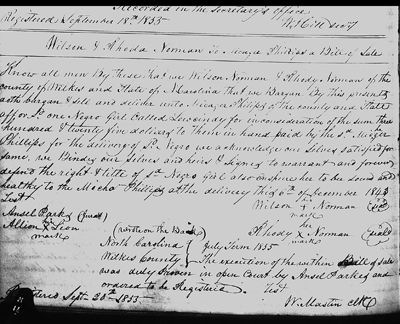 Recorded in the Secretary's office
Registered September 18th 1855
Wilson & Rhoda Norman to Phillips a Bill of Sale
Know all men By these that we Wilson Norman & Rhody Norman of the
county of Wilkes and State of N carolina that we Bargan By this presents
doth bargan & sell and deliver unto Phillips of the county and State
affor Sd one Negro Girl Called for in consideration of the sum three
hundred & twenty five to them in hand paid by the Sd
Phillips for the delivery of Sd Negro we acknowledge our Selves satisfied for
same, we Bind our Selves and heirs & to warrant and forever
defend the right & title of Sd Negro Girl also to be sound and
healthy to the Phillips at the delivery this
Test
Wilson x Norman (seal)
mark
Ansel Parks (Jurat)
her
Rhody x Norman (seal)
mark
Allison x Lion
mark
(written on the Back)
North Carolina
Wilkes County
July Term 1855
The execution of the within Bill of Sale
was duly proven in open Court by Ansel Parks and
ordered to be Registered. Test
Registered Sept 20th 1855
W. Mastin clk